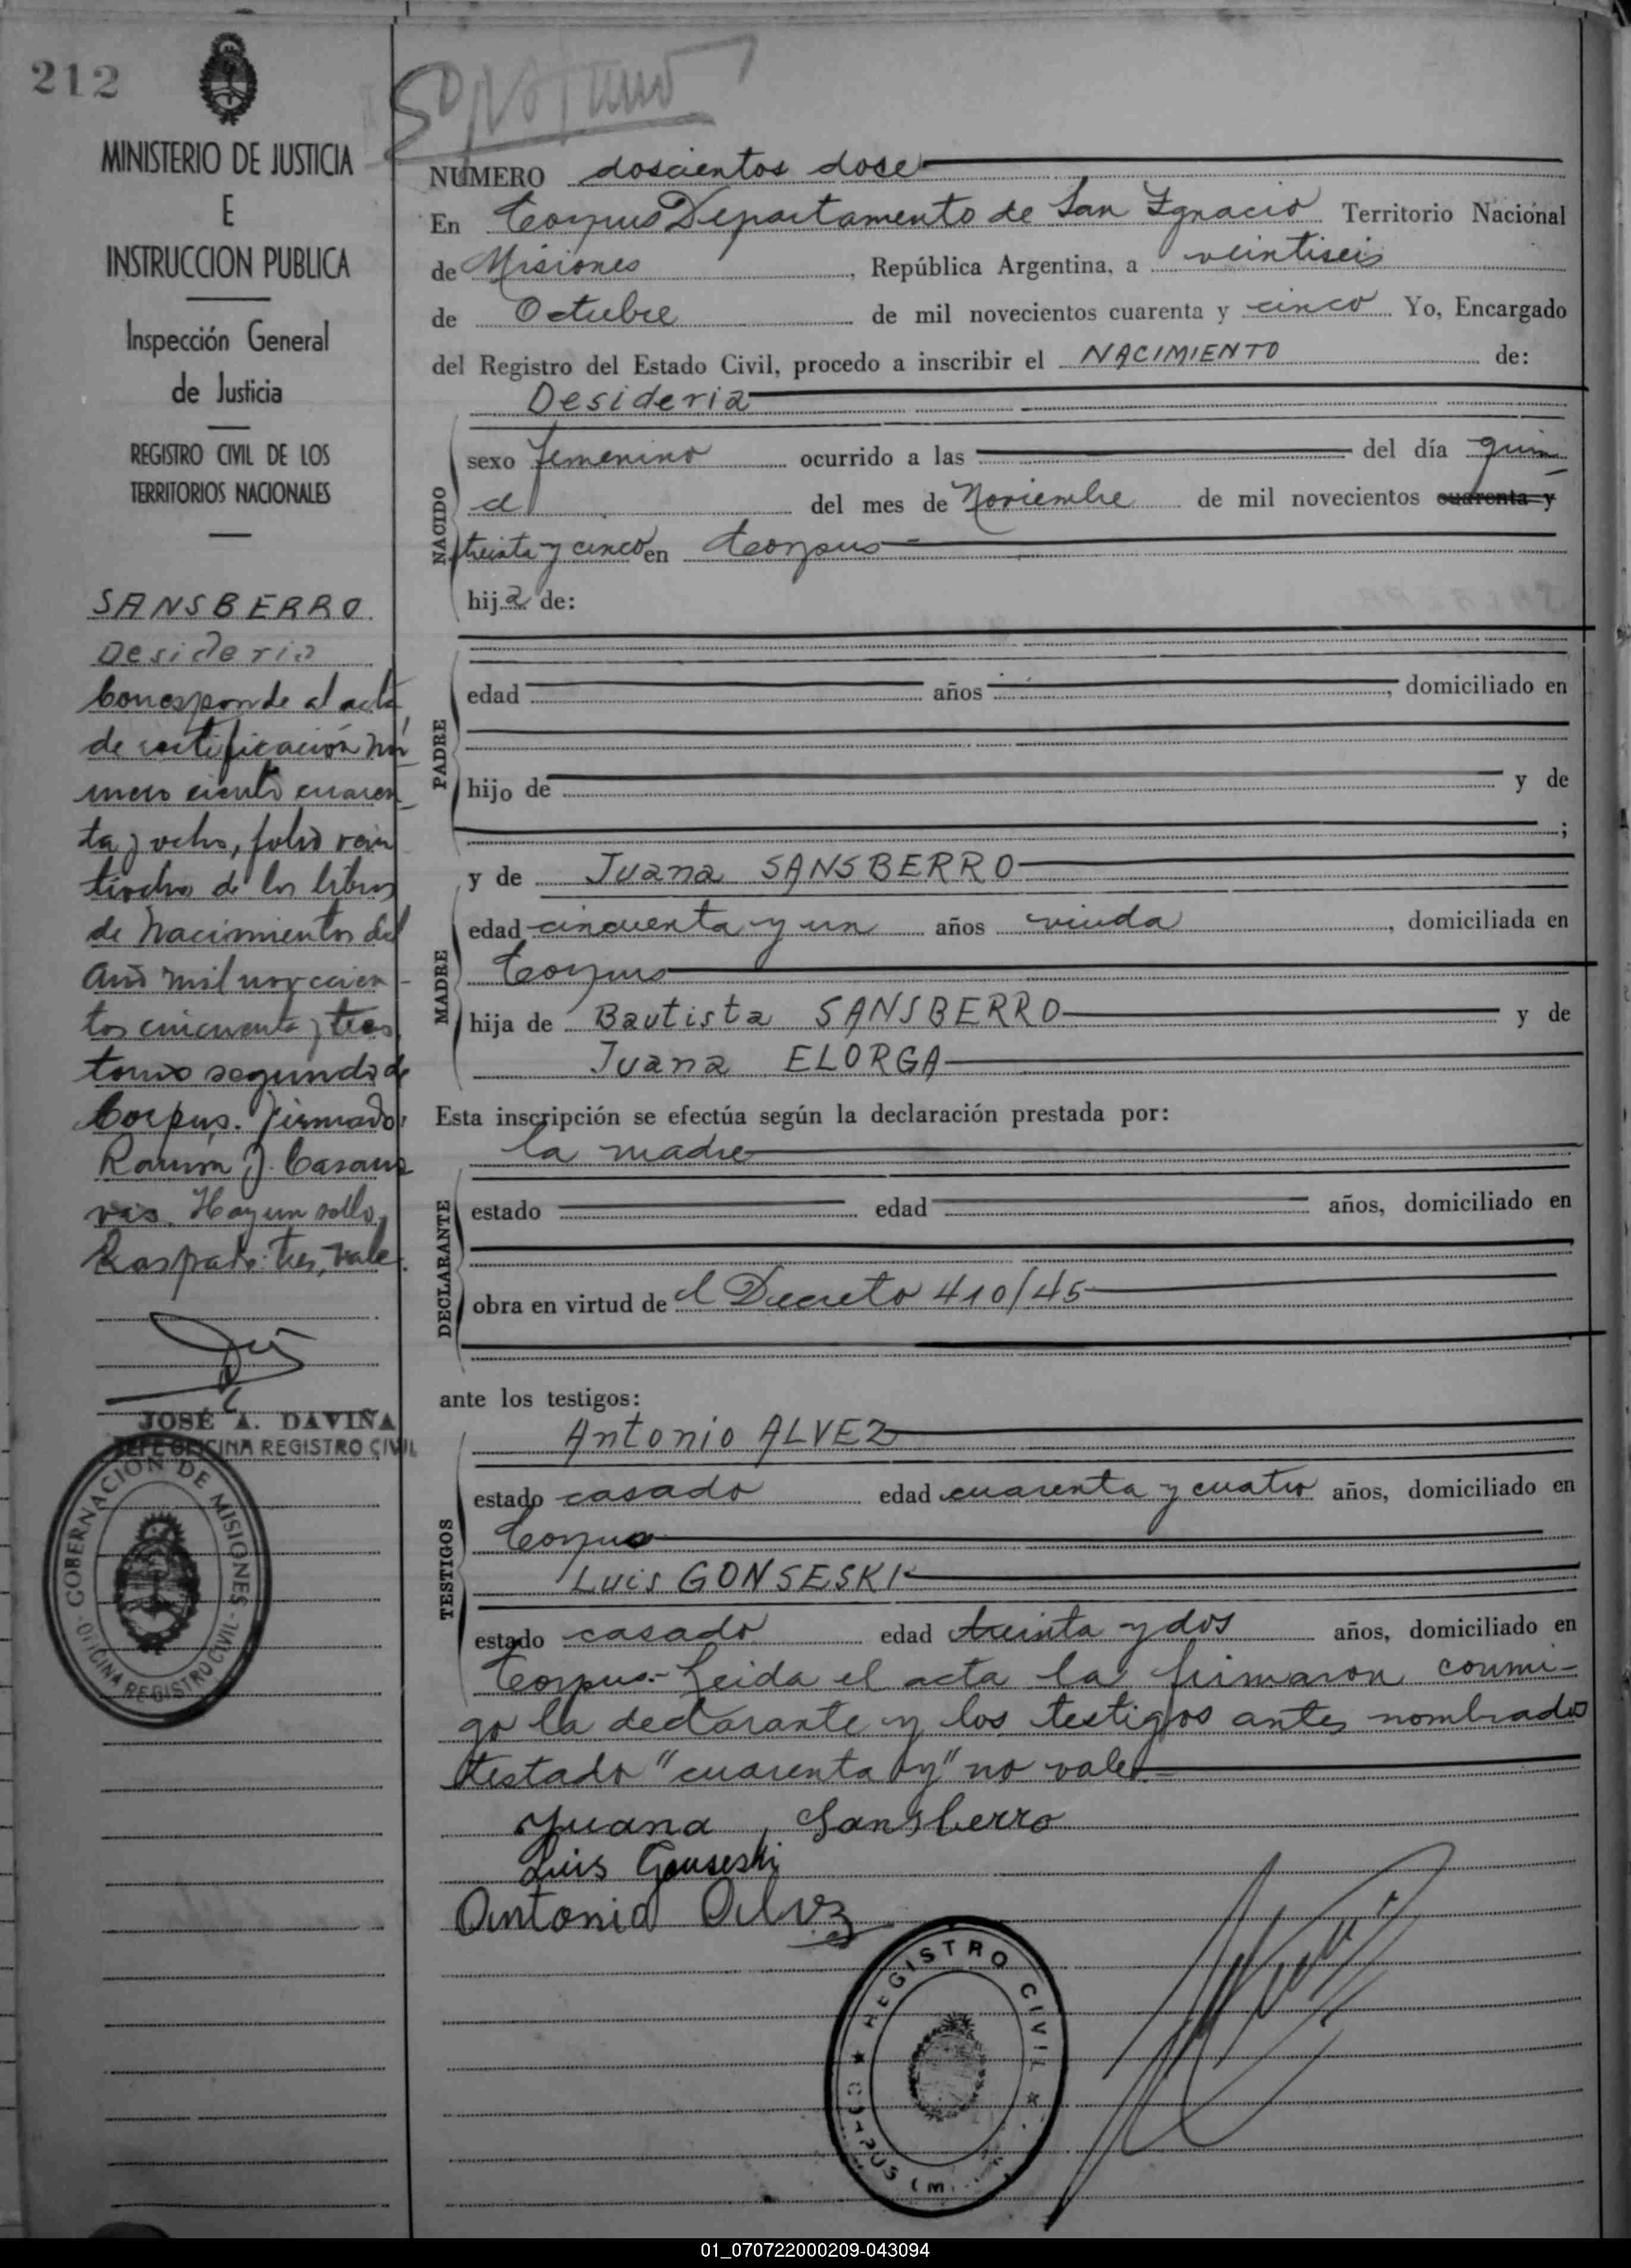 212
MINISTERIO DE JUSTICIA
E
INSTRUCCION PUBLICA
Inspección General
de Justicia
REGISTRO CIVIL DE LOS
TERRITORIOS NACIONALES
SANSBERRO
Desideria
Corresponde al acta
de rectificación nú
mero ciento cuaren
ta y ocho, folio vein
tiocho de los libros
de Nacimientos del
año mil novecien
tos cincuenta y tres
tomo segundo de
Corpus. Firmado:
Ramon J. Casano
vas. Hay un sello
Raspado: tres, vale.
JOSÉ A. DAVIÑA
JEFE OFICINA REGISTRO CIVIL
GOBERNACIÓN DE MISIONES
OFICINA REGISTRO CIVIL
NUMERO doscientos dose
En Corpus Departamento de San Ignacio Territorio Nacional
de Misiones, República Argentina, a veintiseis
de Octubre de mil novecientos cuarenta y cinco Yo, Encargado
del Registro del Estado Civil, procedo a inscribir el NACIMIENTO de:
Desideria
NACIDO
sexo femenino ocurrido a las del día quin
del mes de Noviembre de mil novecientos cuarenta y
treinta y cinco en Corpus
hija de:
PADRE
edad años , domiciliado en
hijo de y de
;
MADRE
y de Juana SANSBERRO
edad cincuenta y un años viuda , domiciliada en
Corpus
hija de Bautista SANSBERRO y de
Juana ELORGA
Esta inscripción se efectúa según la declaración prestada por:
la madre
DECLARANTE
estado edad años, domiciliado en
obra en virtud de l Decreto 410/45
ante los testigos:
TESTIGOS
Antonio ALVEZ
estado casado edad cuarenta y cuatro años, domiciliado en
Corpus
Luis GONSESKI
estado casado edad treinta y dos años, domiciliado en
Corpus.- Leida el acta la firmaron conmi-
go la declarante y los testigos antes nombrados
testado "cuarenta y" no vale.-
Juana Sansberro
Luis Gonseski
Antonio Alvez
REGISTRO CIVIL
CORPUS (M.
01_070722000209-043094